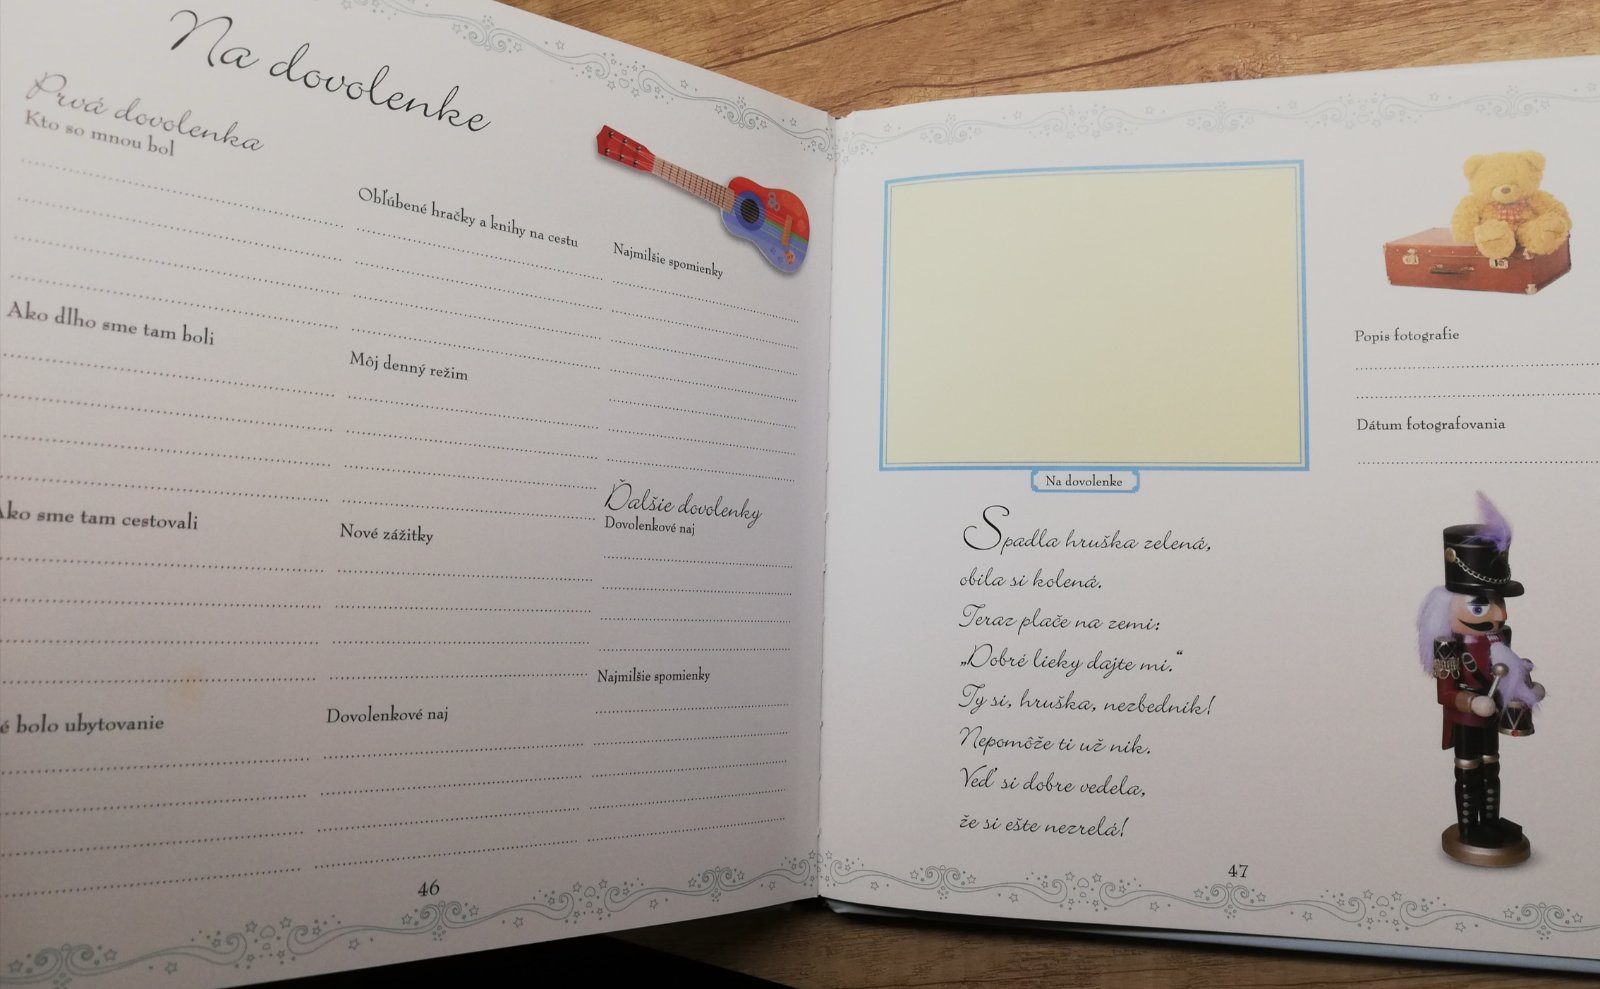 Na dovolenke
Prvá dovolenka
Kto so mnou bol
Ako dlho sme tam boli
Ako sme tam cestovali
bolo ubytovanie
Obľúbené hračky a knihy na cestu
Môj denný režim
Nové zážitky
Dovolenkové naj
Najmilšie spomienky
Ďalšie dovolenky
Dovolenkové naj
Najmilšie spomienky
46
Na dovolenke
Popis fotografie
Dátum fotografovania
Spadla hruška zelená,
obila si kolená.
Teraz plače na zemi:
„Dobré lieky dajte mi.“
Ty si, hruška, nezbedník!
Nepomôže ti už nik.
Veď si dobre vedela,
že si ešte nezrelá!
47